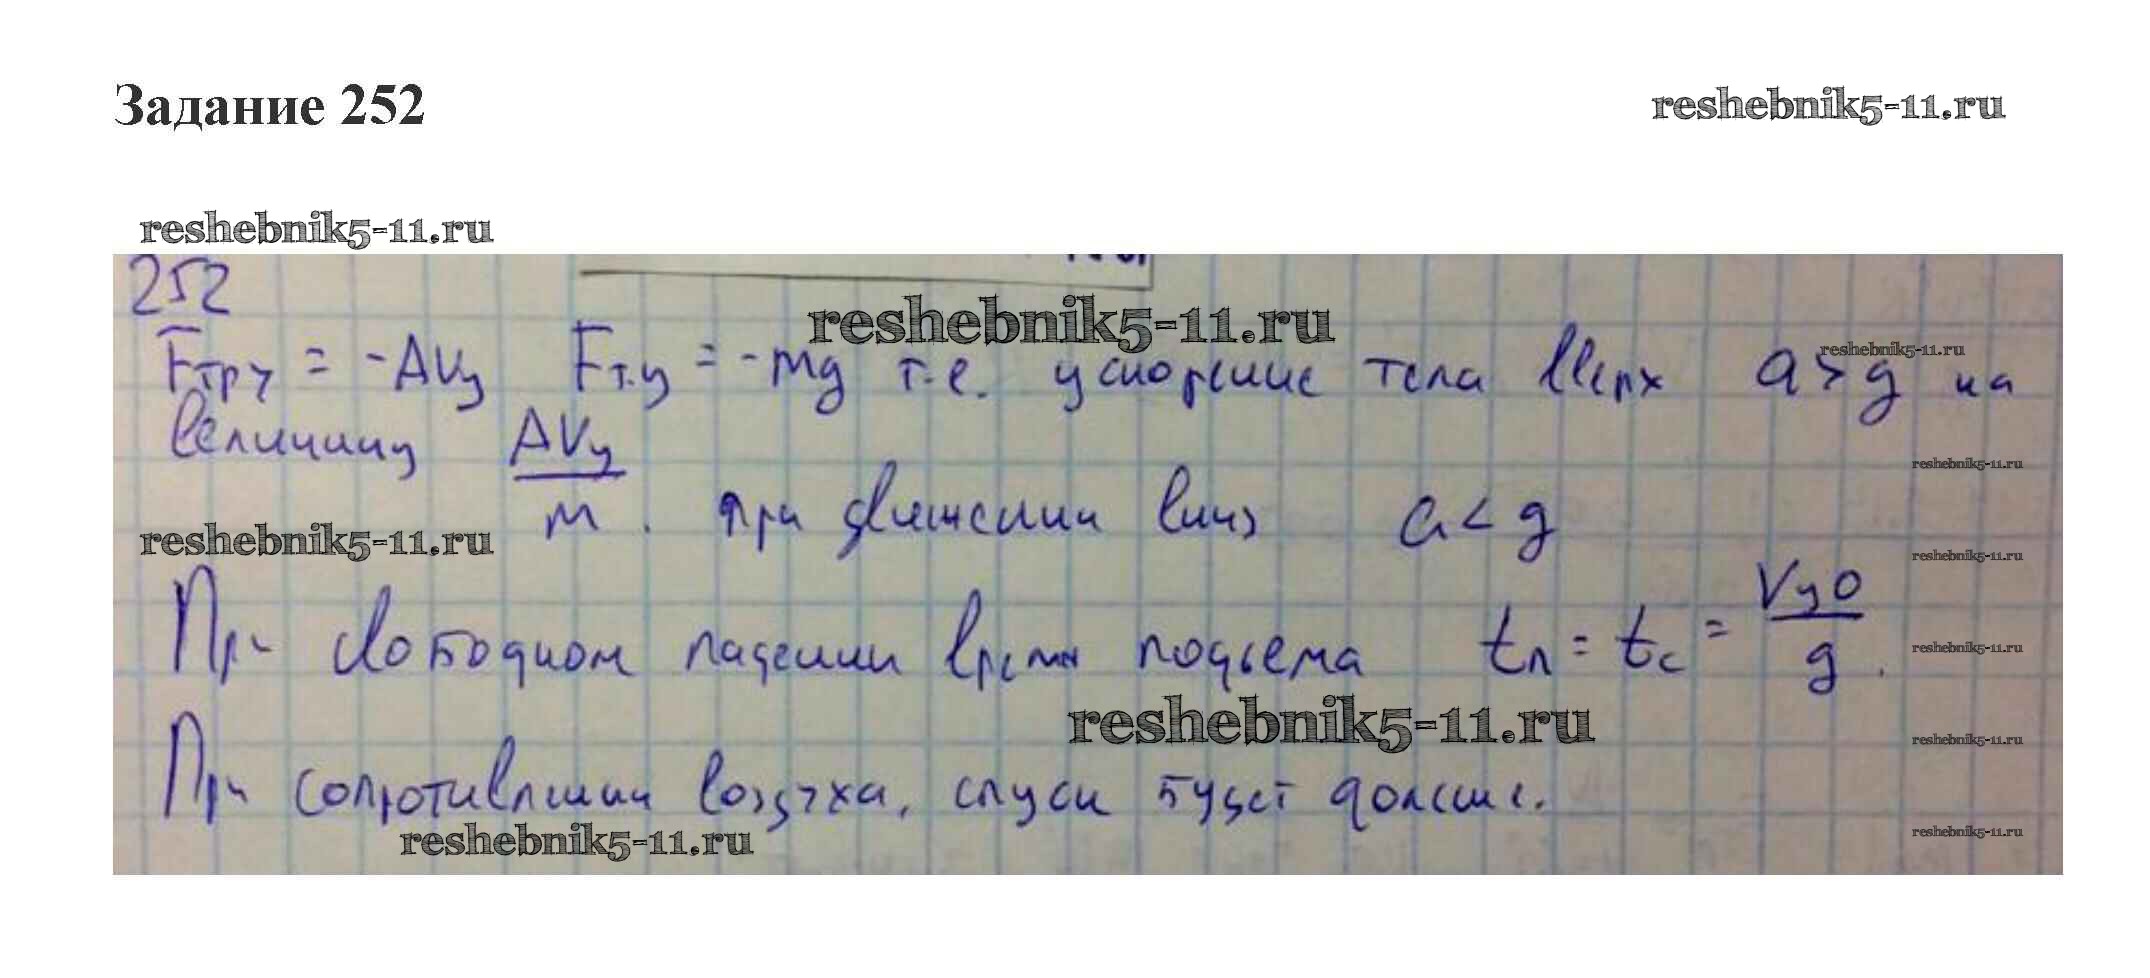 Задание 252
reshebnik5-11.ru
reshebnik5-11.ru
252
reshebnik5-11.ru
Fтр y = -ΔVy Fт.y = -mg т.е. ускорение тела вверх a > g на
reshebnik5-11.ru
величину ΔVy/m. при движении вниз a < g
reshebnik5-11.ru
reshebnik5-11.ru
reshebnik5-11.ru
При свободном падении время подъема tп = tс = Vyo/g.
reshebnik5-11.ru
reshebnik5-11.ru
reshebnik5-11.ru
При сопротивлении воздуха, спуск будет дольше.
reshebnik5-11.ru
reshebnik5-11.ru